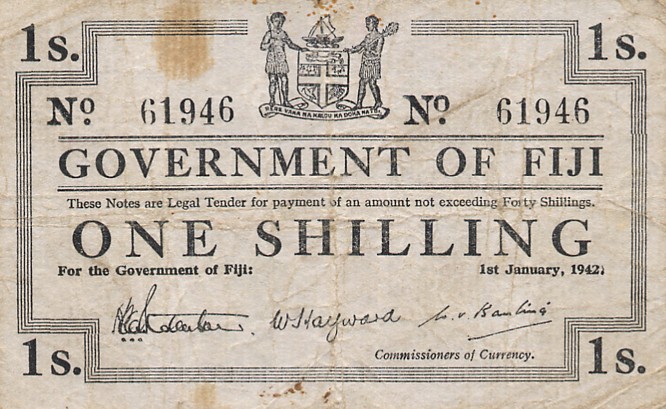 1s. 1s.
RERE VAKA NA KALOU KA DOKA NA TUI
Nº 61946 Nº 61946
GOVERNMENT OF FIJI
These Notes are Legal Tender for payment of an amount not exceeding Forty Shillings.
ONE SHILLING
For the Government of Fiji: 1st January, 1942.
W S Hayward
Commissioners of Currency.
1s. 1s.